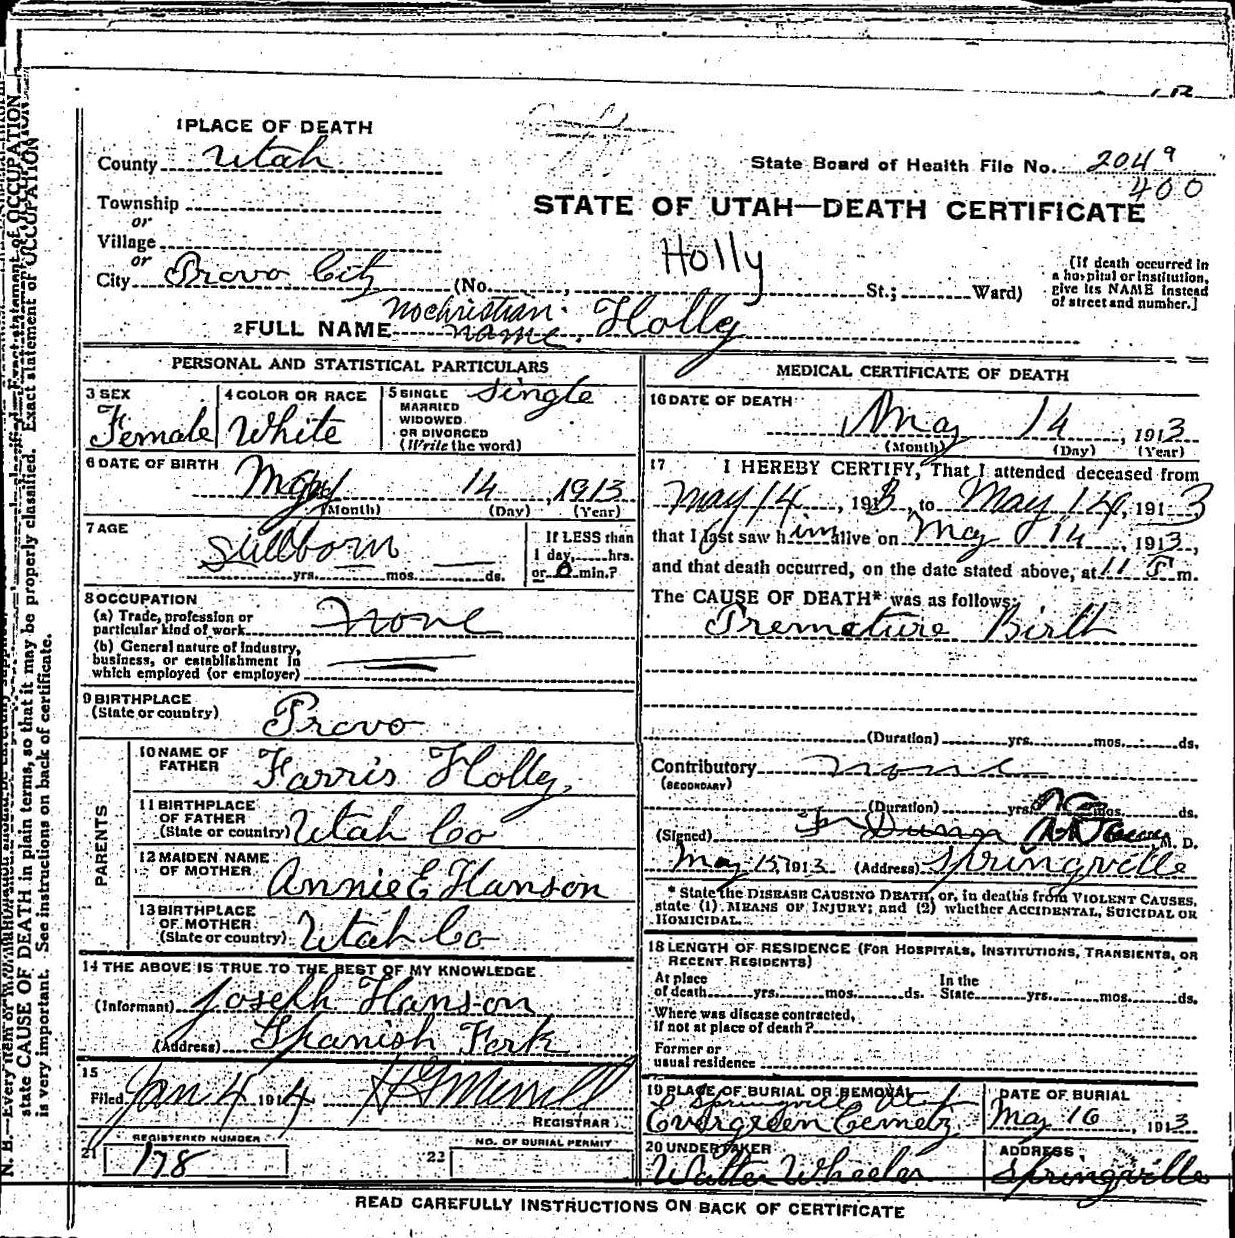 1 PLACE OF DEATH
County Utah
State Board of Health File No. 2049
400
Township
or
Village
or
City Provo City (No. , St.; Ward)
STATE OF UTAH—DEATH CERTIFICATE
Holly
[If death occurred in
a hospital or institution,
give its NAME instead
of street and number.]
2 FULL NAME no christian name. Holly
PERSONAL AND STATISTICAL PARTICULARS
3 SEX
Female
4 COLOR OR RACE
White
5 SINGLE
MARRIED
WIDOWED
OR DIVORCED
(Write the word)
Single
6 DATE OF BIRTH
May 14 1913
(Month) (Day) (Year)
7 AGE
Stillborn
yrs. mos. ds.
If LESS than
1 day, hrs.
or 0 min.?
8 OCCUPATION
(a) Trade, profession or
particular kind of work None
(b) General nature of industry,
business, or establishment in
which employed (or employer)
9 BIRTHPLACE
(State or country) Provo
PARENTS
10 NAME OF
FATHER Farris Holly,
11 BIRTHPLACE
OF FATHER
(State or country) Utah Co
12 MAIDEN NAME
OF MOTHER Annie E Hanson
13 BIRTHPLACE
OF MOTHER
(State or country) Utah Co
14 THE ABOVE IS TRUE TO THE BEST OF MY KNOWLEDGE
(Informant) Joseph Hanson
(Address) Spanish Fork
15
Filed Jan 4 1914 H G Merrill
REGISTRAR
21 REGISTERED NUMBER
178
22 NO. OF BURIAL PERMIT
MEDICAL CERTIFICATE OF DEATH
16 DATE OF DEATH
May 14, 1913
(Month) (Day) (Year)
17 I HEREBY CERTIFY, That I attended deceased from
May 14, 1913, to May 14, 1913
that I last saw him alive on May 14, 1913,
and that death occurred, on the date stated above, at 11 m.
The CAUSE OF DEATH* was as follows:
Premature Birth
(Duration) yrs. mos. ds.
Contributory none
(SECONDARY)
(Duration) yrs. mos. ds.
(Signed) M. D.
May 15, 1913 (Address) Springville
* State the DISEASE CAUSING DEATH, or, in deaths from VIOLENT CAUSES,
state (1) MEANS OF INJURY; and (2) whether ACCIDENTAL, SUICIDAL OR
HOMICIDAL.
18 LENGTH OF RESIDENCE (FOR HOSPITALS, INSTITUTIONS, TRANSIENTS, OR
RECENT RESIDENTS)
At place
of death yrs. mos. ds.
In the
State yrs. mos. ds.
Where was disease contracted,
if not at place of death?
Former or
usual residence
19 PLACE OF BURIAL OR REMOVAL
Evergreen Cemetz
DATE OF BURIAL
May 16, 1913
20 UNDERTAKER
Walter Wheeler
ADDRESS
Springville
READ CAREFULLY INSTRUCTIONS ON BACK OF CERTIFICATE
state CAUSE OF DEATH in plain terms, so that it may be properly classified. Exact statement of OCCUPATION
is very important. See instructions on back of certificate.